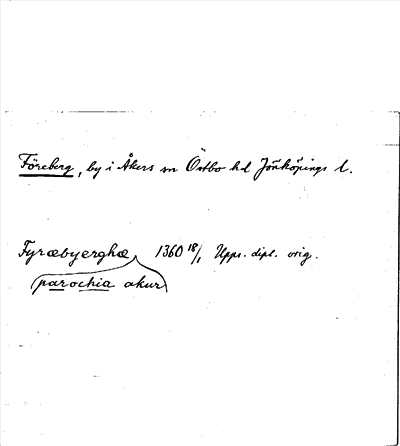 Föreberg, by i Åkers sn Östbo hd Jönköpings l.
Fyræbyerghæ 1360 18/1 Upps. dipl. orig.
(parochia akur)